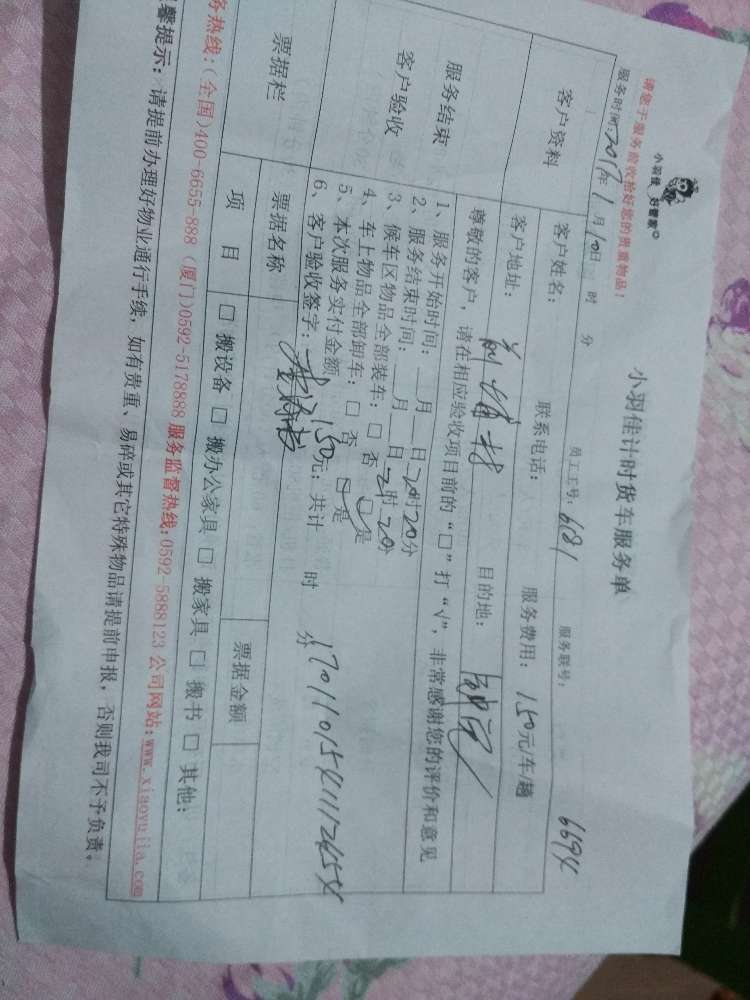 小羽佳 好管家
小羽佳计时货车服务单
请您于服务前收拾好您的贵重物品！
服务时间：2017年1月10日 时 分 员工工号：681 服务联号：6694
客户资料
客户姓名： 联系电话： 服务费用：150元/车/趟
客户地址： 目的地：
尊敬的客户，请在相应验收项目前的“□”打“√”，非常感谢您的评价和意见
服务结束
客户验收
1、服务开始时间：__月__日20时20分
2、服务结束时间：__月__日21时20分
3、候车区物品全部装车：□否 □是
4、车上物品全部卸车：□否 □是
5、本次服务实付金额：150元；共计 时 分
6、客户验收签字：
票据栏
票据名称 票据金额
项 目 □搬设备 □搬办公家具 □搬家具 □搬书 □其他：
务热线：(全国)400-6655-888 (厦门)0592-5178888 服务监督热线：0592-5888123 公司网站：www.xiaoyujia.com
馨提示：请提前办理好物业通行手续，如有贵重、易碎或其它特殊物品请提前申报，否则我司不予负责。